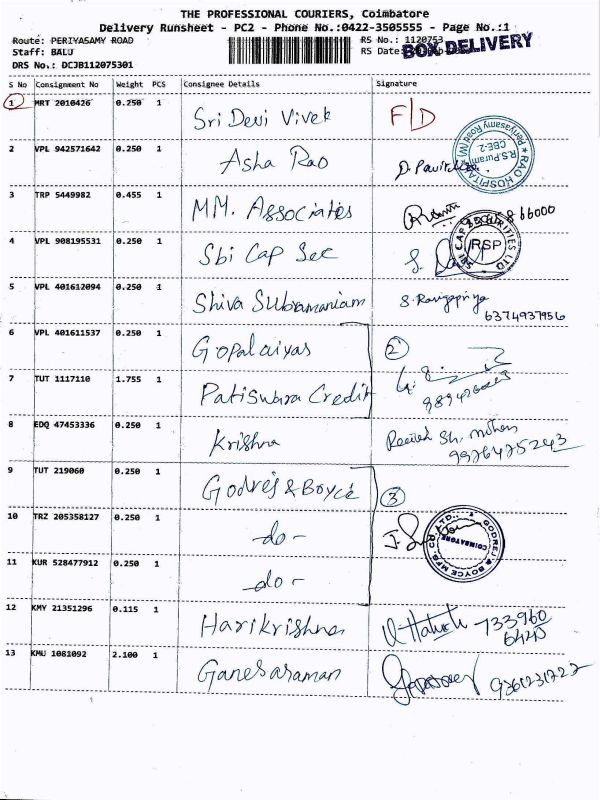 THE PROFESSIONAL COURIERS, Coimbatore
Delivery Runsheet - PC2 - Phone No.:0422-3505555 - Page No.:1
Route: PERIYASAMY ROAD RS No.: 1120753
Staff: BALU RS Date:
BOX DELIVERY
DRS No.: DCJB112075301
S No Consignment No Weight PCS Consignee Details Signature
1 MRT 2010426 0.250 1 Sri Devi Vivek F/D
2 VPL 942571642 0.250 1 Asha Rao
RAO HOSPITAL
Periyasamy Road (W)
R.S.Puram
CBE-2
3 TRP 5449982 0.455 1 MM. Associates
4 VPL 908195531 0.250 1 Sbi Cap Sec
SBI CAP SECURITIES LTD
RSP
5 VPL 401612094 0.250 1 Shiva Subramaniam
6374937956
6 VPL 401611537 0.250 1 Gopalaiyas 2
7 TUT 1117110 1.755 1 Patiswara Credit
8 EDQ 47453336 0.250 1 Krishna
9976475243
9 TUT 219060 0.250 1 Godrej & Boyce 3
10 TRZ 205358127 0.250 1 -do-
GODREJ & BOYCE MFG. CO. LTD.,
COIMBATORE
11 KUR 528477912 0.250 1 -do-
12 KMY 21351296 0.115 1 Harikrishna 733960
13 KMU 1081092 2.100 1 Ganesaraman 9361231722